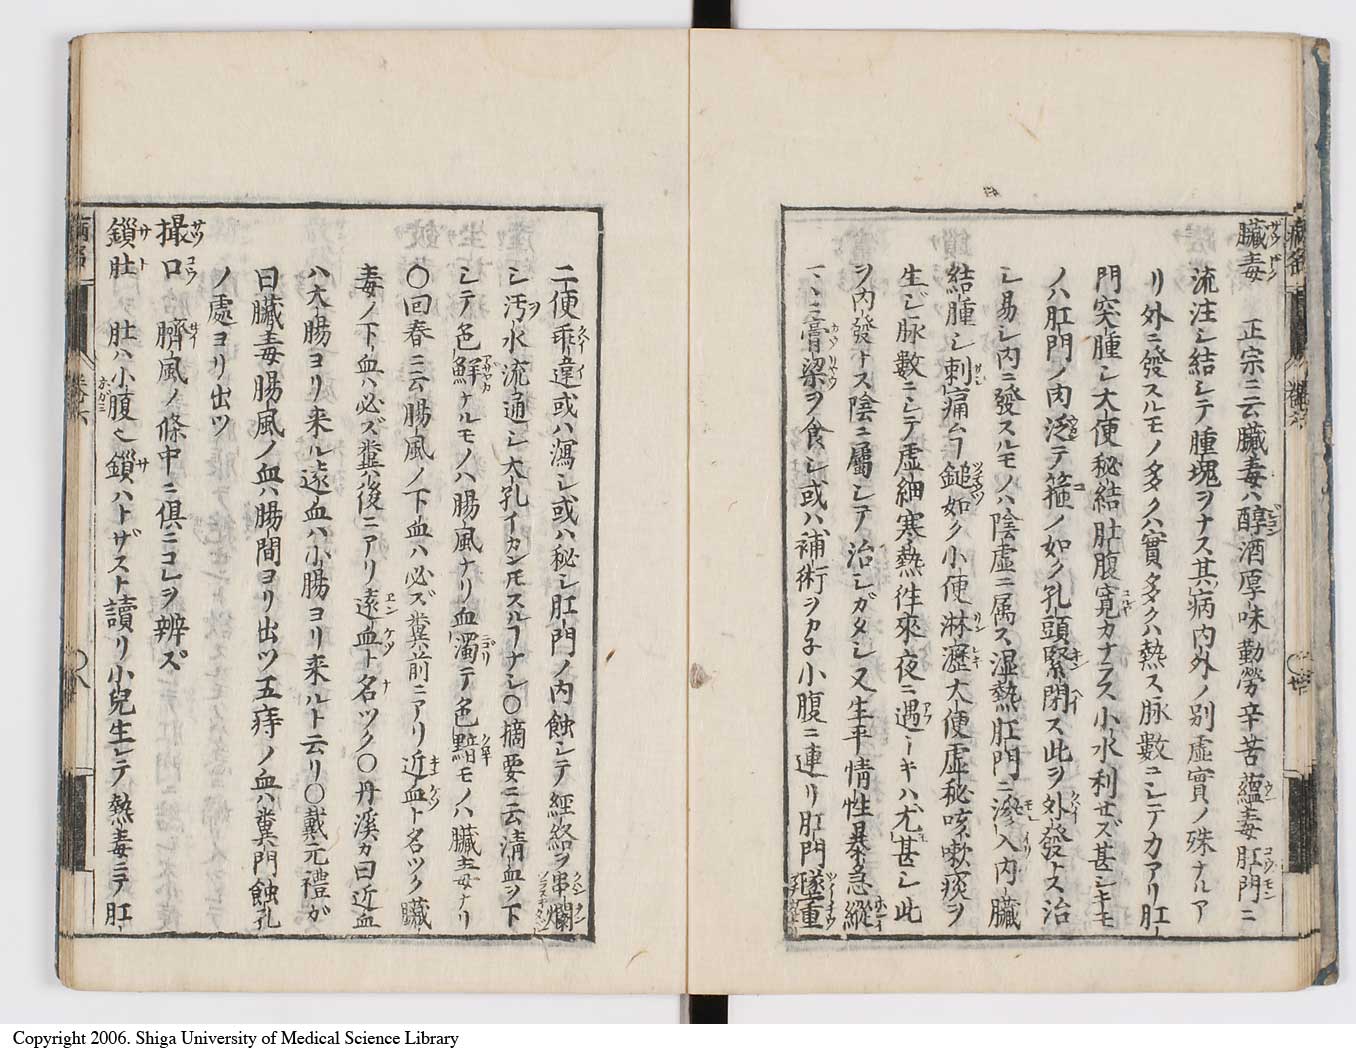 臟毒 正宗ニ云臟毒ハ醇酒厚味勤勞辛苦蘊毒肛門ニ
流注シ結シテ腫塊ヲナス其病内外ノ別虚實ノ殊ナルア
リ外ニ發スルモノ多クハ實多クハ熱ス脉數ニシテカアリ肛
門突腫シ大便秘結肚腹寛カナラス小水利セズ甚シキモ
ノハ肛門ノ肉泛テ箍ノ如ク孔頭緊閉ス此ヲ外發トス治
シ易シ内ニ發スルモノハ陰虚ニ属ス湿熱肛門ニ滲入内臟
結腫シ刺痛ムヿ鎚如ク小便淋瀝大便虚秘咳嗽痰ヲ
生ジ脉數ニシテ虚細寒熱徃來夜ニ遇トキハ尤甚シ此
ヲ内發トス陰ニ屬シテ治シガタシ又生平情性暴急縱
膏粱ヲ食シ或ハ補術ヲカ子小腹ニ連リ肛門墜重
二便乖違或ハ瀉シ或ハ秘シ肛門ノ内蝕シテ經絡ヲ串爛
シ汚水流通シ大孔イカンモスルヿナシ〇摘要ニ云清血ヲ下
シテ色鮮ナルモノハ腸風ナリ血濁テ色黯モノハ臟毒ナリ
〇回春ニ云腸風ノ下血ハ必ズ糞前ニアリ近血ト名ツク臟
毒ノ下血ハ必ズ糞後ニアリ遠血ト名ツク〇丹溪カ曰近血
ハ大腸ヨリ来ル遠血ハ小腸ヨリ来ルト云リ〇戴元禮ガ
曰臟毒腸風ノ血ハ腸間ヨリ出ツ五痔ノ血ハ糞門蝕孔
ノ處ヨリ出ツ
撮口 臍風ノ條中ニ俱ニコレヲ辨ズ
鎖肚 肚ハ小腹也鎖ハトザスト讀リ小兒生レテ熱毒ニテ肛
Copyright 2006. Shiga University of Medical Science Library